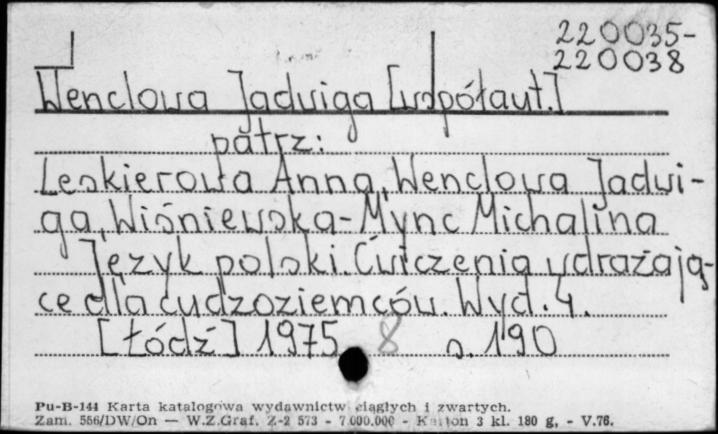 220035-
220038
Wenclowa Jadwiga [współaut.]
patrz:
Leskierowa Anna, Wenclowa Jadwi-
ga, Wiśniewska-Mync Michalina
Język polski. Ćwiczenia wdrażają-
ce dla cudzoziemców. Wyd. 4.
[Łódź] 1975 8 s. 190
Pu-B-144 Karta katalogowa wydawnictw ciągłych i zwartych.
Zam. 556/DW/On — W.Z.Graf. Z-2 573 - 7.000.000 - Karton 3 kl. 180 g, - V.76.